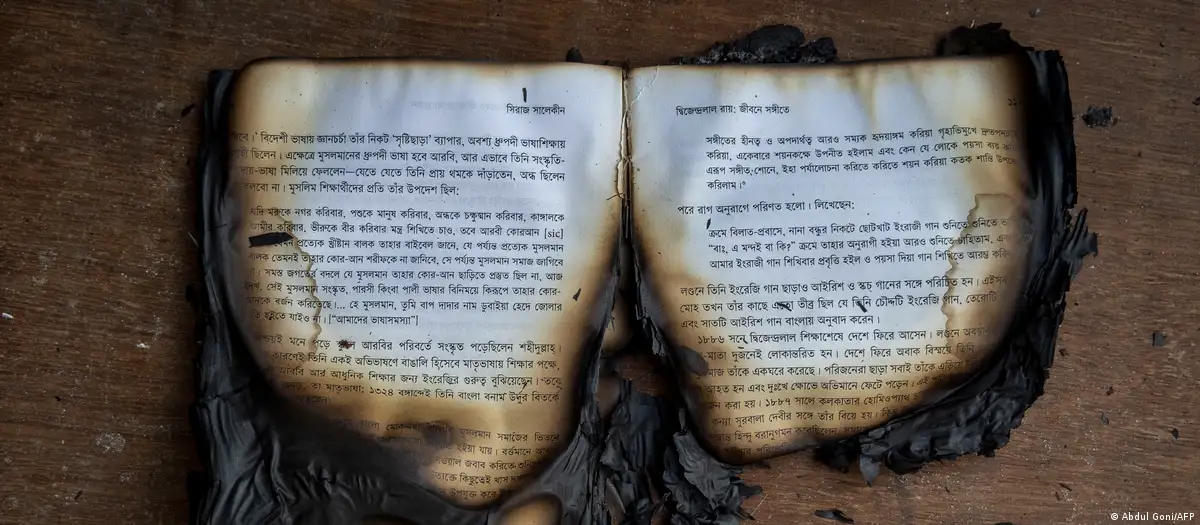 সিরাজ সালেকীন
বিদেশী ভাষায় জ্ঞানচর্চা তাঁর নিকট 'সৃষ্টিছাড়া' ব্যাপার, অবশ্য ধ্রুপদী ভাষাশিক্ষায়
ছিলেন। এক্ষেত্রে মুসলমানের ধ্রুপদী ভাষা হবে আরবি, আর এভাবে তিনি সংস্কৃতি-
ভাষা মিলিয়ে ফেললেন—যেতে যেতে তিনি প্রায় থমকে দাঁড়াতেন, অন্ধ ছিলেন
না। মুসলিম শিক্ষার্থীদের প্রতি তাঁর উপদেশ ছিল:
যদি মরুকে নগর করিবার, পশুকে মানুষ করিবার, অন্ধকে চক্ষুষ্মান করিবার, কাঙ্গালকে
করিবার, ভীরুকে বীর করিবার মন্ত্র শিখিতে চাও, তবে আরবী কোরআন [sic]
প্রত্যেক খ্রীষ্টান বালক তাহার বাইবেল জানে, যে পর্যন্ত প্রত্যেক মুসলমান
তেমনই তাহার কোর-আন শরীফকে না জানিবে, সে পর্যন্ত মুসলমান সমাজ জাগিবে
সমস্ত জগতের বদলে যে মুসলমান তাহার কোর-আন ছাড়িতে প্রস্তুত ছিল না, আজ
সেই মুসলমান সংস্কৃত, পারসী কিংবা পালী ভাষার বিনিময়ে কিরূপে তাহার কোর-
বর্জন করিতেছে।... হে মুসলমান, তুমি বাপ দাদার নাম ডুবাইয়া হেদে জোলার
হইতে যাইও না। ["আমাদের ভাষাসমস্যা"]
মনে পড়ে আরবির পরিবর্তে সংস্কৃত পড়েছিলেন শহীদুল্লাহ।
তিনি একই অভিভাষণে বাঙালি হিসেবে মাতৃভাষায় শিক্ষার পক্ষে,
আর আধুনিক শিক্ষার জন্য ইংরেজির গুরুত্ব বুঝিয়েছেন। তবে
তা মাতৃভাষা; ১৩২৪ বঙ্গাব্দেই তিনি বাংলা বনাম উর্দুর বিতর্কে
মুসলমান সমাজের ভিতরে
হইয়া যায়। বর্তমানে
জবাব করিতে
কিছুতেই
উপযুক্ত করে
দ্বিজেন্দ্রলাল রায়: জীবনে সঙ্গীতে
সঙ্গীতের হীনত্ব ও অপদার্থত্ব আরও সম্যক হৃদয়াঙ্গম করিয়া গৃহাভিমুখে
করিয়া, একেবারে শয়নকক্ষে উপনীত হইলাম এবং কেন যে লোকে পয়সা ব্যয়
এরূপ সঙ্গীত শোনে, ইহা পর্যালোচনা করিতে করিতে শয়ন করিয়া কতক শান্তি
করিলাম।
পরে রাগ অনুরাগে পরিণত হলো। লিখেছেন:
ক্রমে বিলাত-প্রবাসে, নানা বন্ধুর নিকটে ছোটখাট ইংরাজী গান শুনিতে শুনিতে
"বাঃ, এ মন্দই বা কি?" ক্রমে তাহার অনুরাগী হইয়া আরও শুনিতে চাহিতাম,
আমার ইংরাজী গান শিখিবার প্রবৃত্তি হইল ও পয়সা দিয়া গান শিখিতে আরম্ভ
লণ্ডনে তিনি ইংরেজি গান ছাড়াও আইরিশ ও স্কচ গানের সঙ্গে পরিচিত হন।
মোহ তখন তাঁর কাছে তীব্র ছিল যে তিনি চৌদ্দটি ইংরেজি গান, তেরোটি
এবং সাতটি আইরিশ গান বাংলায় অনুবাদ করেন।
১৮৮৬ সনে দ্বিজেন্দ্রলাল শিক্ষাশেষে দেশে ফিরে আসেন। লণ্ডনে
দুজনেই লোকান্তরিত হন। দেশে ফিরে অবাক বিস্ময়ে তিনি
তাঁকে একঘরে করেছে। পরিজনেরা ছাড়া সবাই তাঁকে
আহত হন এবং দুঃখে ক্ষোভে অভিমানে ফেটে পড়েন। এই
করা হয়। ১৮৮৭ সালে কলকাতার হোমিওপ্যাথ
কন্যা সুরবালা দেবীর সঙ্গে তাঁর বিয়ে হয়।
হিন্দু বরানুগমন
© Abdul Goni/AFP